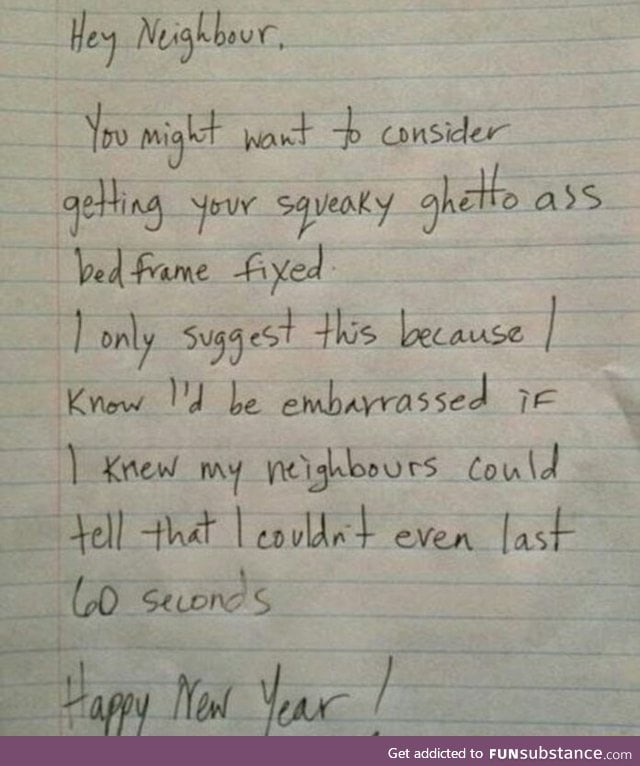 Hey Neighbour,
You might want to consider
getting your squeaky ghetto ass
bedframe fixed.
I only suggest this because I
know I'd be embarrassed if
I knew my neighbours could
tell that I couldn't even last
60 seconds
Happy New Year!
Get addicted to FUNsubstance.com